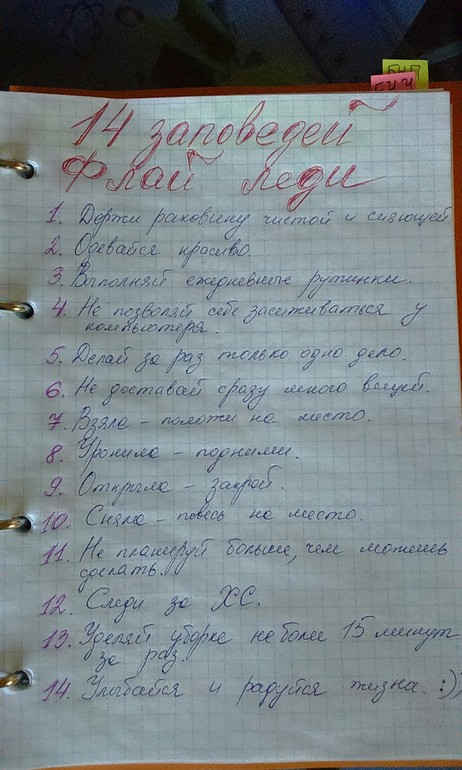 14 заповедей
Флай леди
1. Держи раковину чистой и сияющей
2. Одевайся красиво.
3. Выполняй ежедневные рутинки.
4. Не позволяй себе засиживаться у
компьютера.
5. Делай за раз только одно дело.
6. Не доставай сразу много вещей.
7. Взяла - положи на место.
8. Уронила - подними.
9. Открыла - закрой.
10. Сняла - повесь на место.
11. Не планируй больше, чем можешь
сделать.
12. Следи за ХС.
13. Уделяй уборке не боле 15 минут
за раз.
14. Улыбайся и радуйся жизна. :))